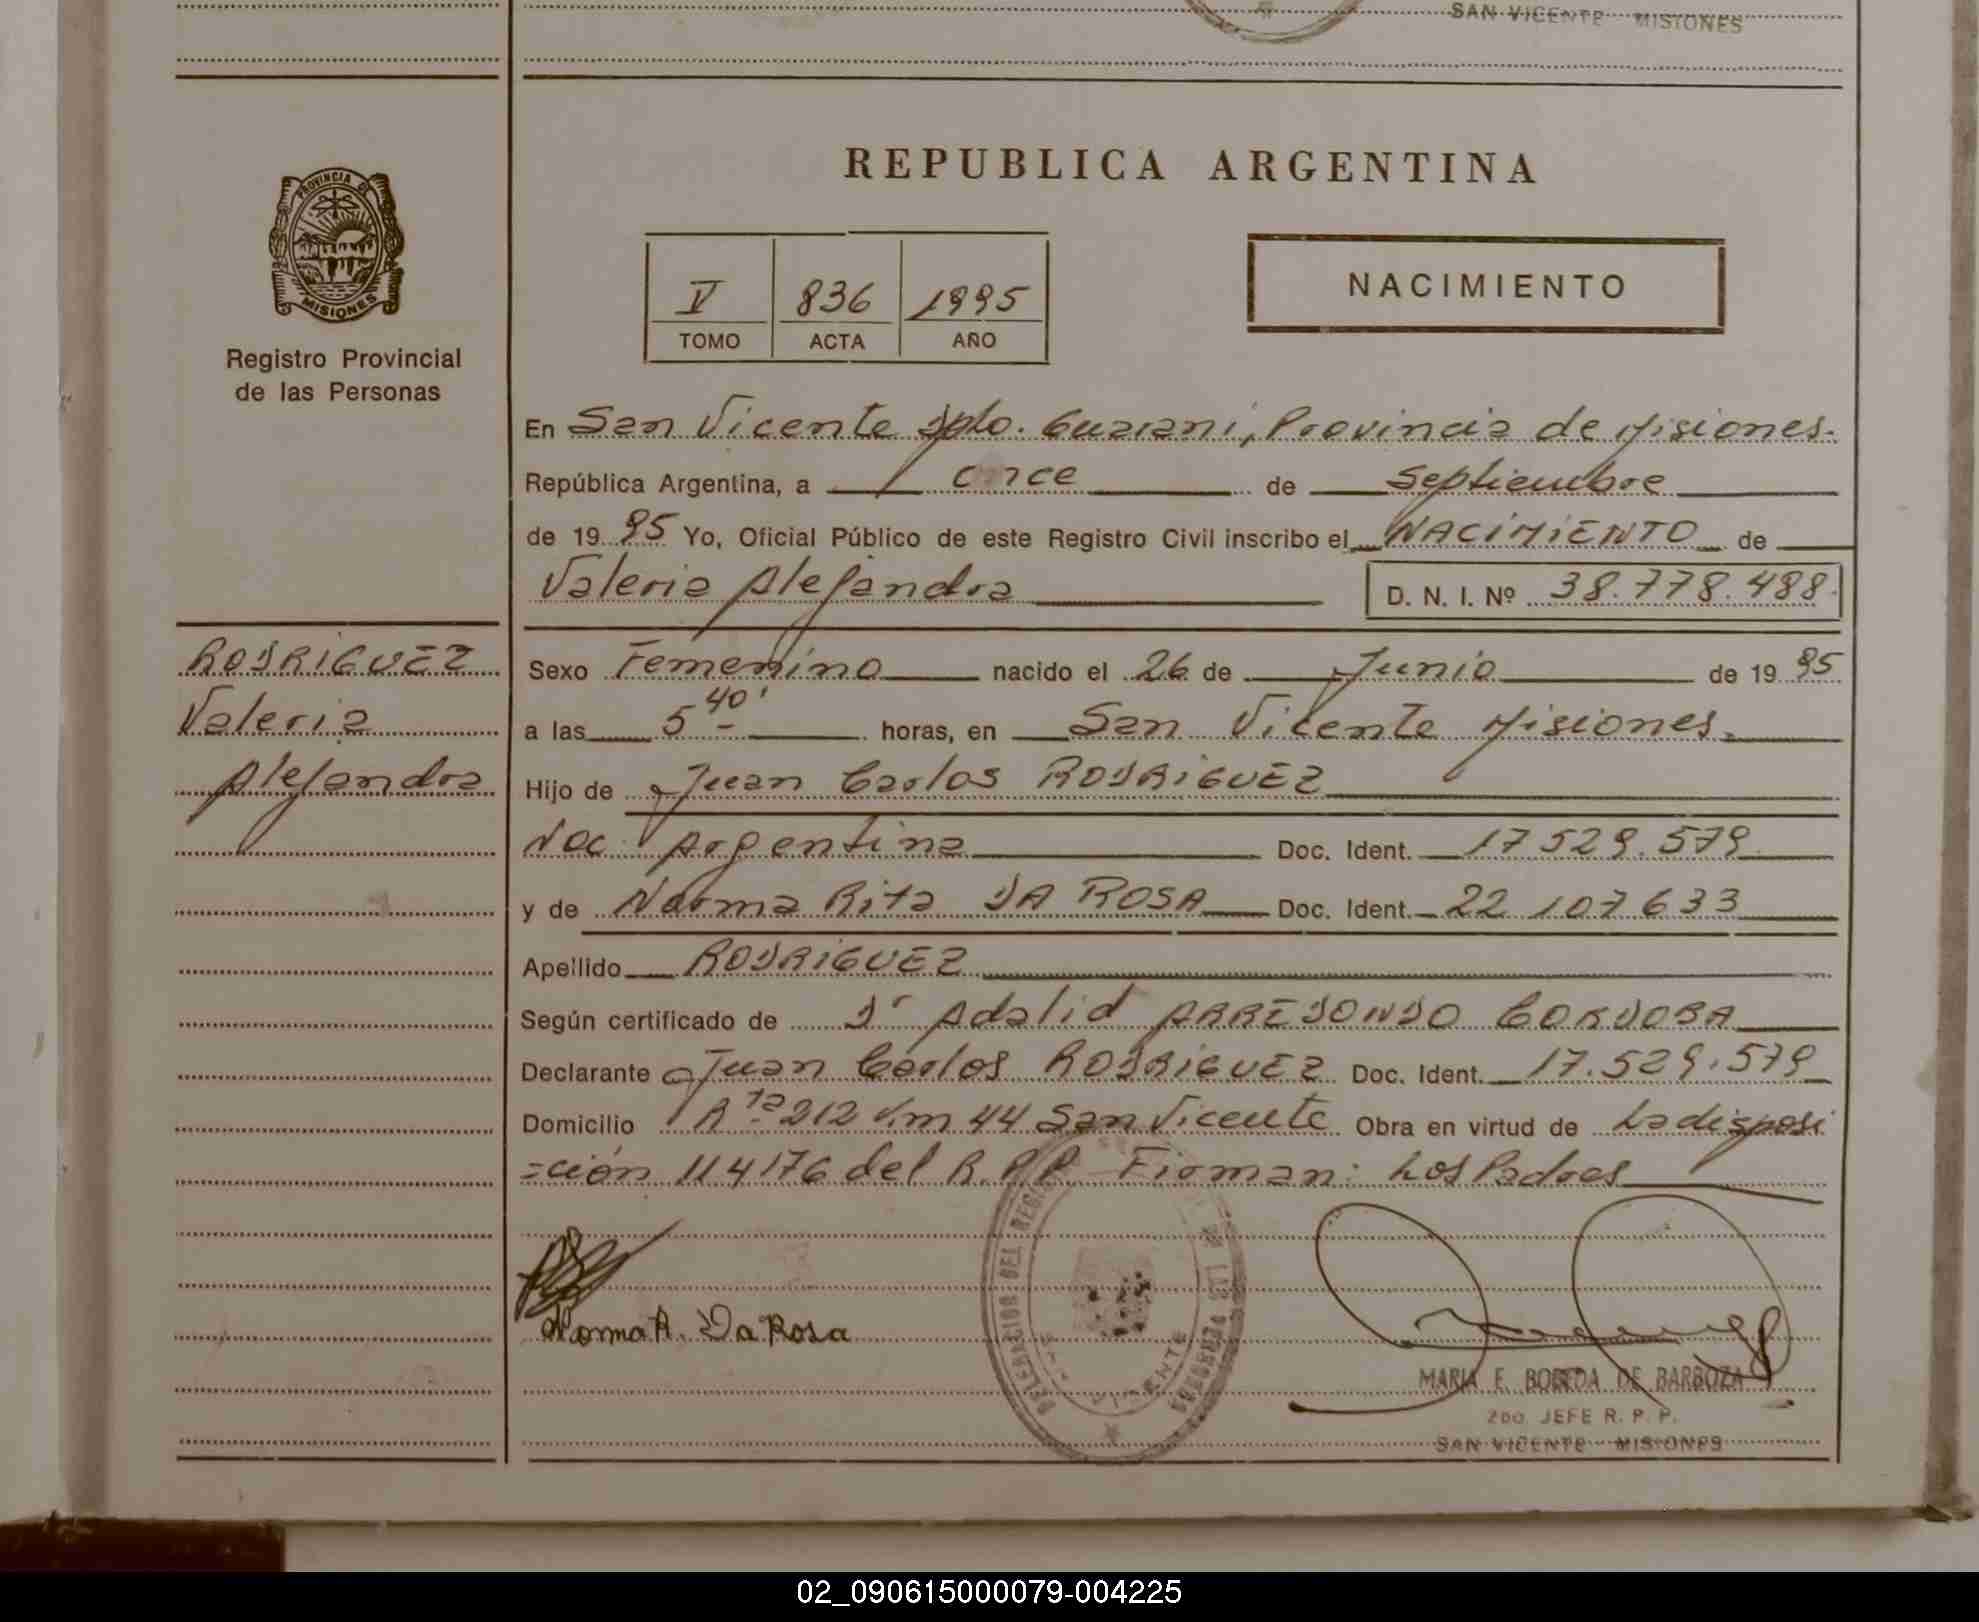 SAN VICENTE MISIONES
PROVINCIA DE
MISIONES
Registro Provincial
de las Personas
REPUBLICA ARGENTINA
V 836 1995
TOMO ACTA AÑO
NACIMIENTO
En San Vicente Dpto. Guarani, Provincia de Misiones.
República Argentina, a once de Septiembre
de 19 95 Yo, Oficial Público de este Registro Civil inscribo el NACIMIENTO de
Valeria Alejandra D. N. I. Nº 38.778.488.
RODRIGUEZ
Valeria
Alejandra
Sexo Femenino nacido el 26 de Junio de 19 95
a las 5 40' horas, en San Vicente Misiones.
Hijo de Juan Carlos RODRIGUEZ
Nac. Argentina Doc. Ident. 17 529.579
y de Norma Rita DA ROSA Doc. Ident. 22 107 633
Apellido RODRIGUEZ
Según certificado de Dr Adalid ARREDONDO CORDOBA
Declarante Juan Carlos RODRIGUEZ Doc. Ident. 17.529.579
Domicilio R ta 212 Km 44 San Vicente Obra en virtud de La disposi
=ción 114176 del R.P.P. Firman: Los Padres
Norma R. Da Rosa
DELEGACION DEL REGISTRO DE LAS PERSONAS
SAN VICENTE
MARIA E. BOBEDA DE BARBOZA
2do. JEFE R. P. P.
SAN VICENTE MISIONES
02_090615000079-004225